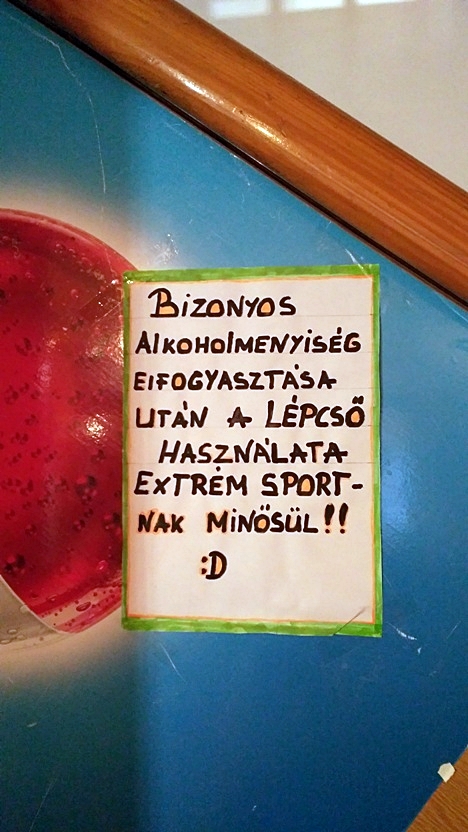 BIZONYOS
AlKOHOlMENYISÉG
ElFOGYASZTÁSA
UTÁN A LÉPCSŐ
HASZNÁLATA
EXTRÉM SPORT-
NAK MINŐSÜL!!
:D